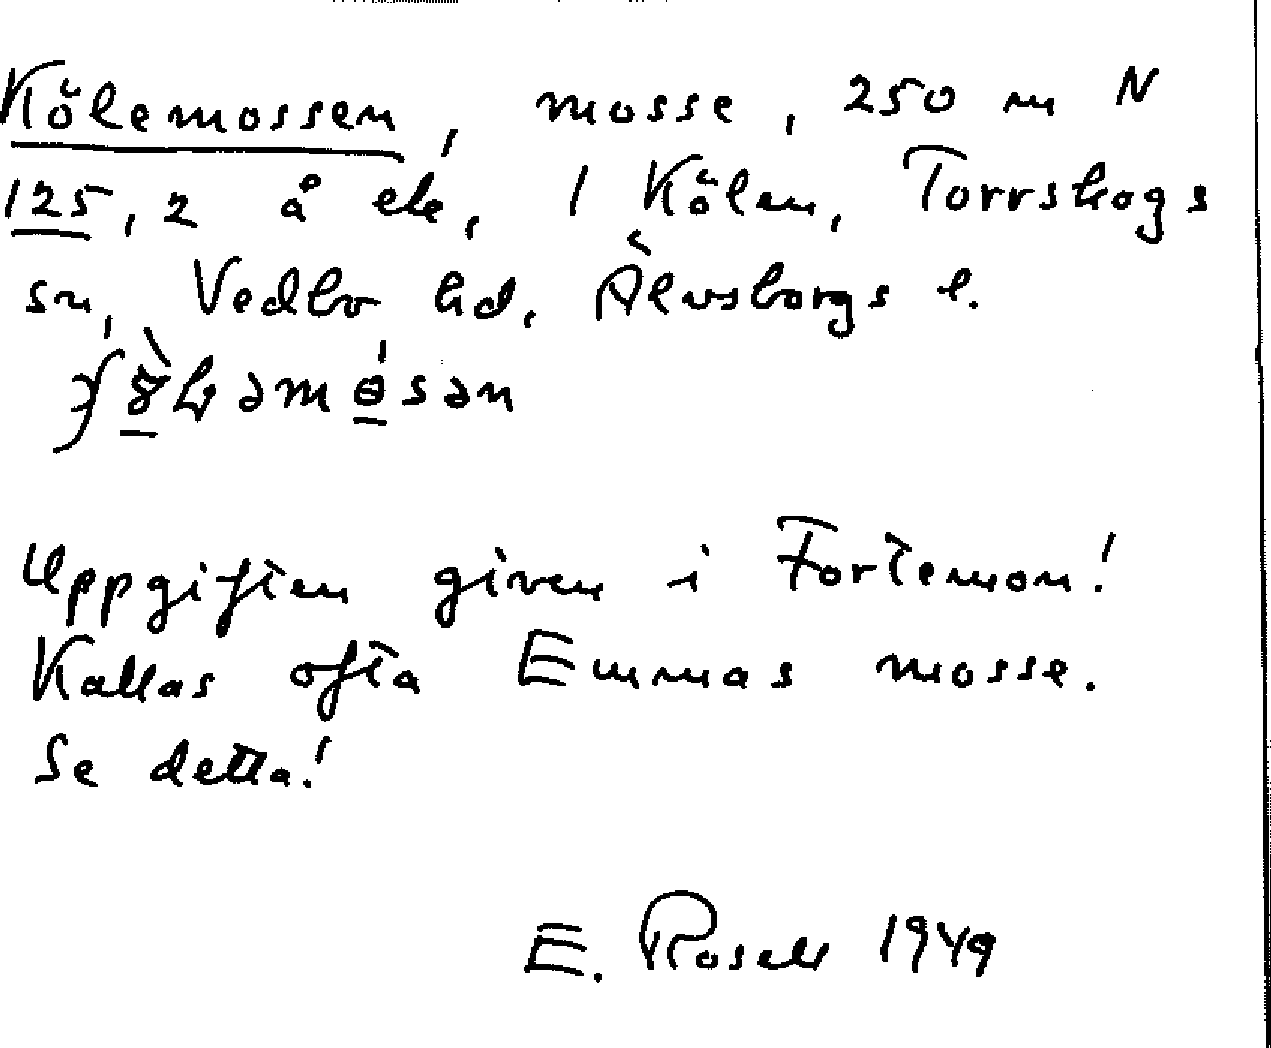 Kölemossen, mosse, 250 m N
125,2 å ek, 1 Kölen, Torrskogs
sn, Vedbo hd, Älvsborgs l.
Uppgiften given i Fortemon!
Kallas ofta Emmas mosse.
Se detta!
E. Rosell 1949